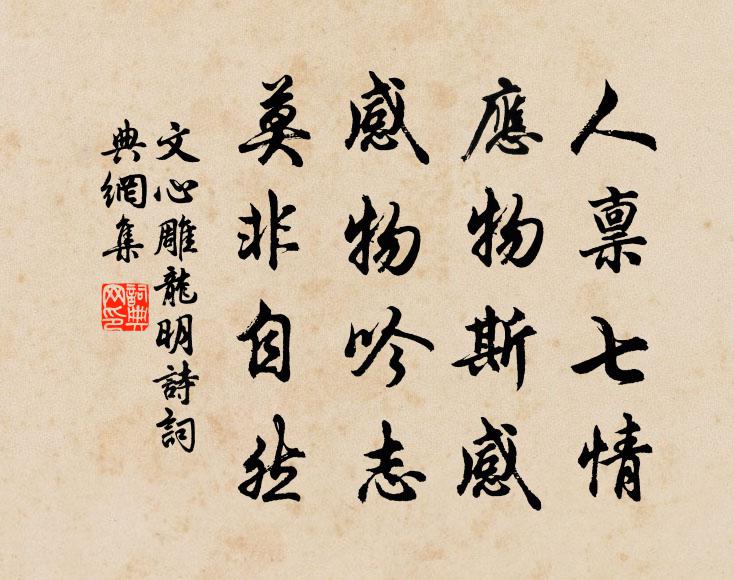 人稟七情
應物斯感
感物吟志
莫非自然
文心雕龍明詩詞
典網集
詞典
网印